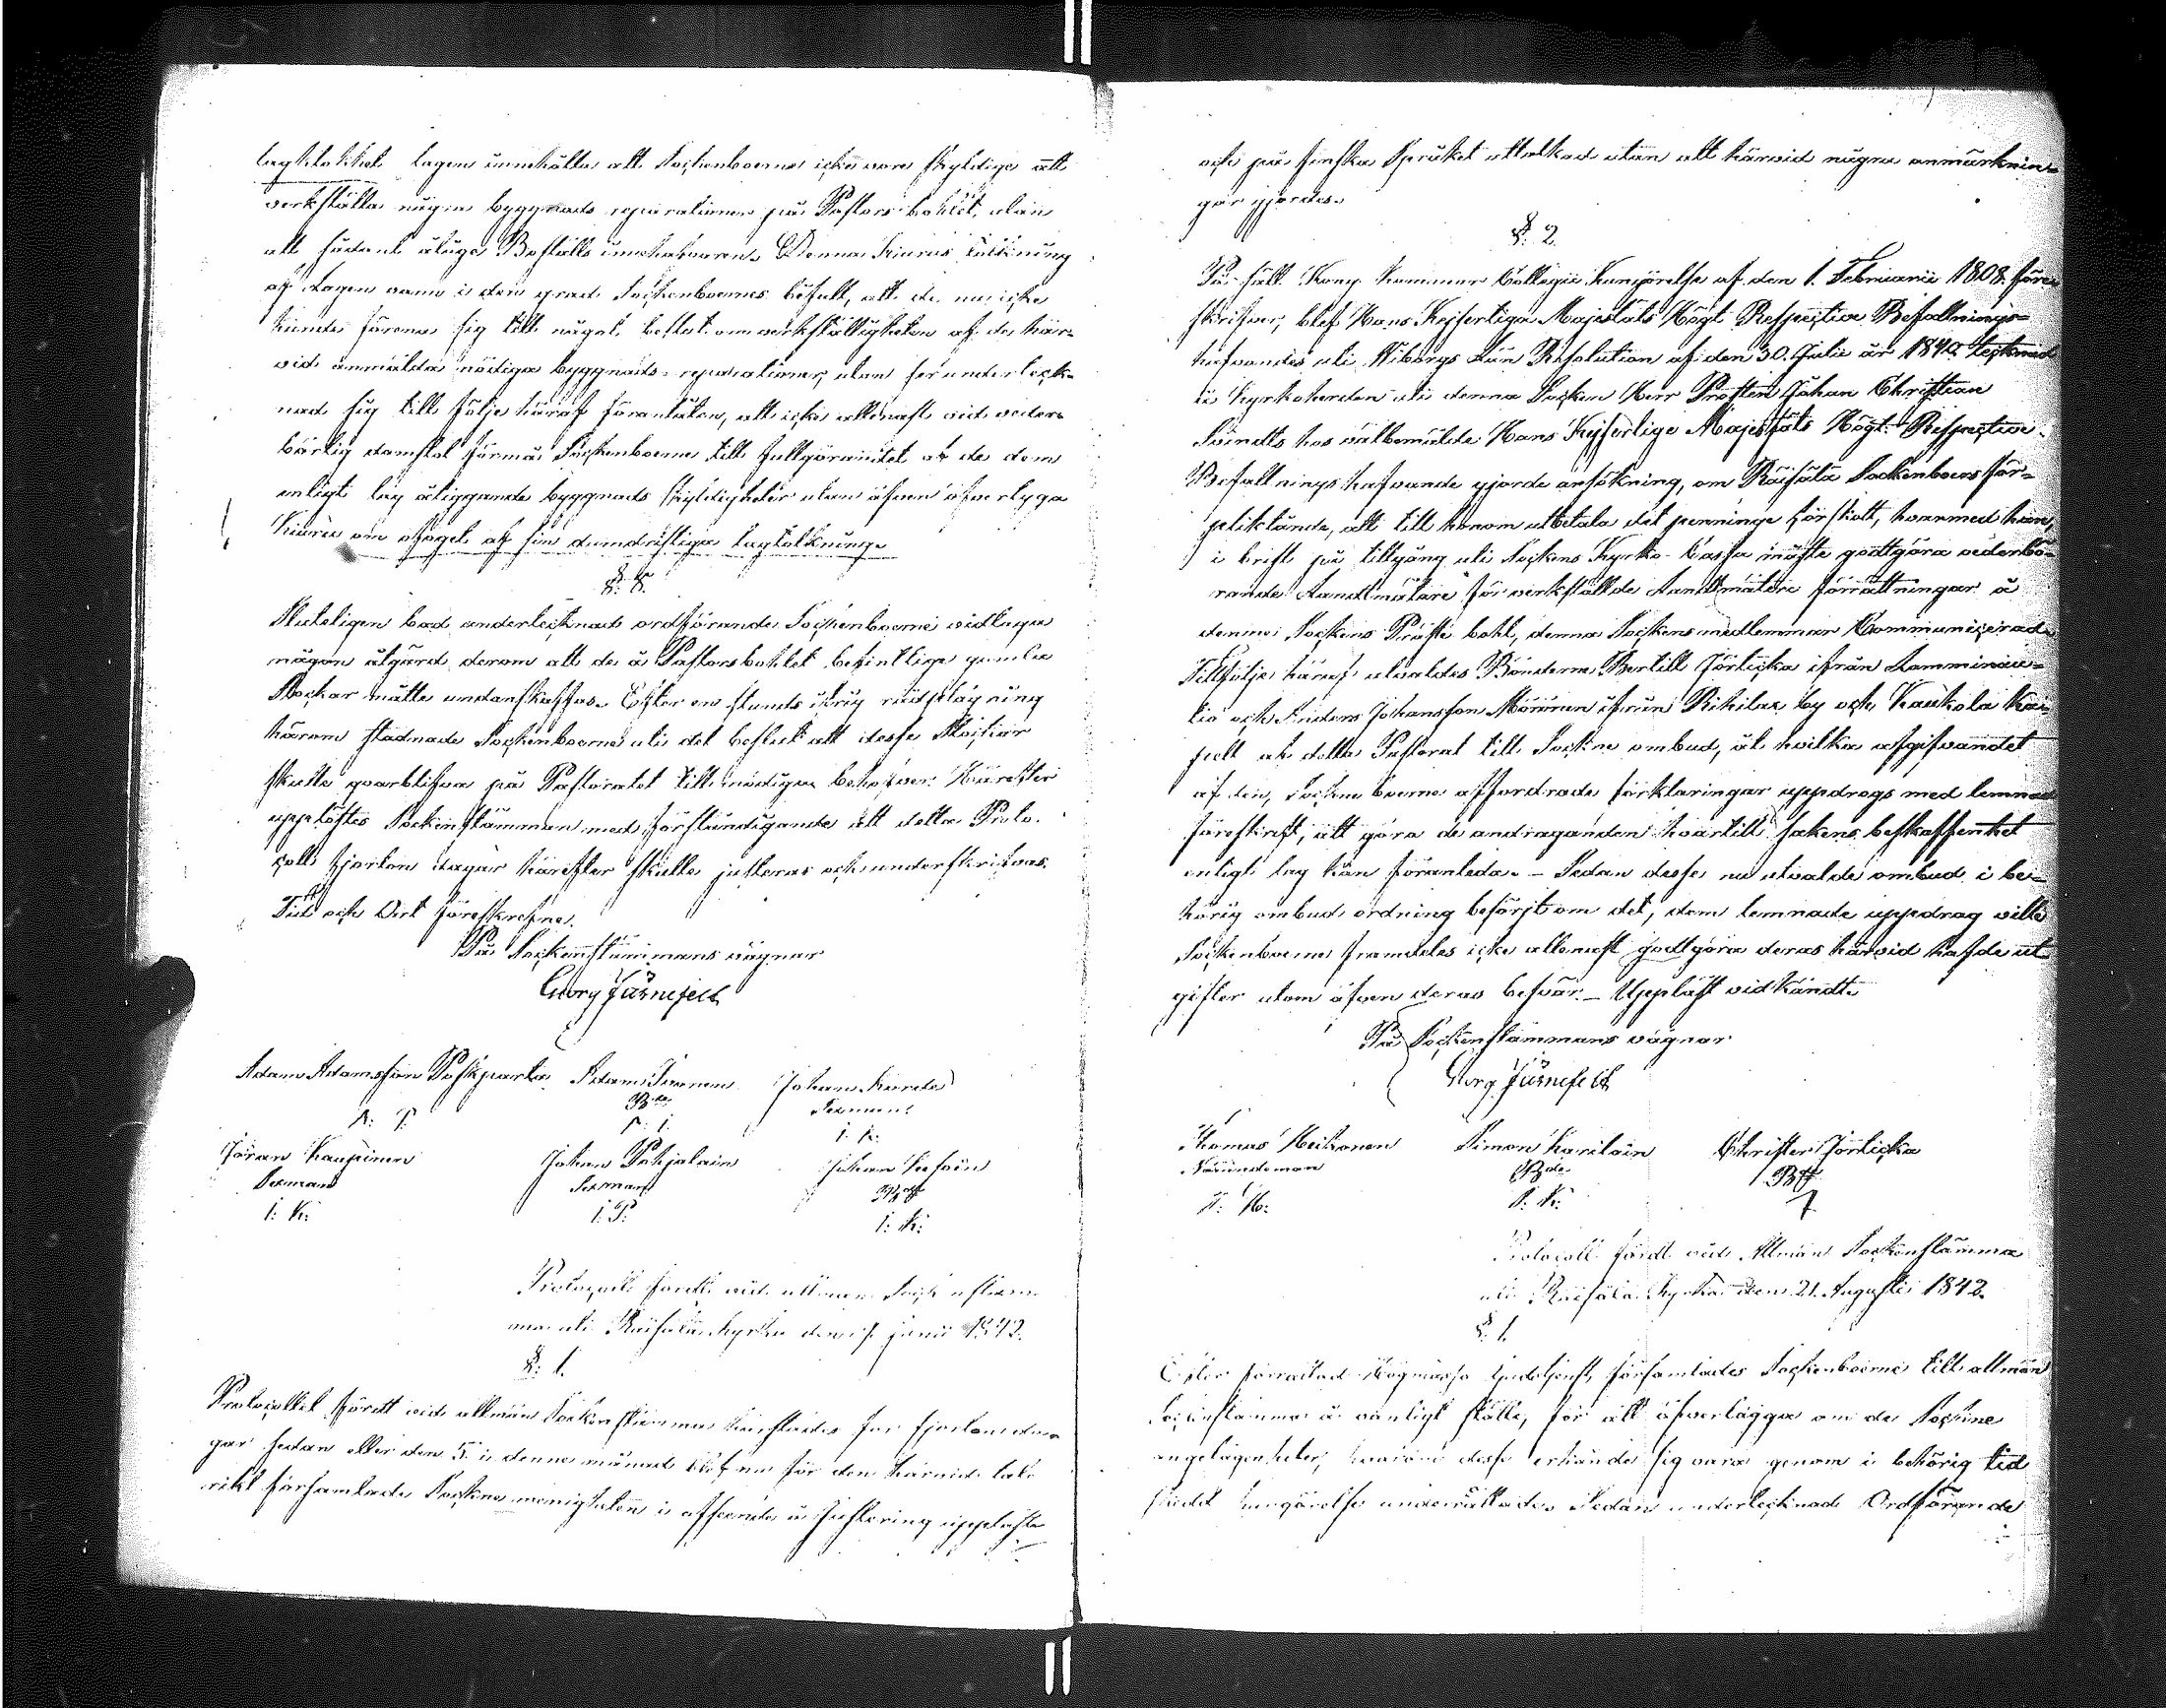 lagklokhet lagens innehålla att Sockenboerne icke vore skyldige att
verkställa några byggnads reparationer på Pastors bohlet, utan
att sådant ålåge Boställs innehafvaren. Denna Kiurus tolkning
af Lagen vann i den grad Sockenboernes bifall, att de nu icke
kunde förena sig till något beslut om verkställigheten af de här-
vid anmälda nödiga byggnads-reparationer, utan ser underteck-
nad sig till följe häraf föranlåten, att icke allenast vid veder-
börlig domstol förmå Sockenboerne till fullgörandet af de dem
enligt lag åliggande byggnads skyldigheter utan äfven öfvertyga
Kiurus om afsaget af sin dumdristiga lagtolkning.
§: 8.
Sluteligen bad undertecknad ordförande Sockenboerne vidtaga
någon åtgärd derom att de å Pastorsbohlet befintlige gamla
Stockar måtte undanskaffas. Efter en stunds ifrig rådplägning
härom stadnade Sockenboerne uti det beslut att desse
skulle qvarblifva på Pastoratet till nödiga behofver. Härefter
upplöstes Sockenstämman med förständigande att detta Proto-
coll fjorton dagar härefter skulle justeras och underskrifvas.
Tid och Ort föreskrefne.
På Sockenstämmans vägnar
Georg Järnefelt
Adam Adamsson Poskiparta Adam Johan
Bde Sexman
A. P. A. I. I. K.
Jöran Kaupinen Johan Pohjalain Johan
Sexman Sexman Bde
I: K: I: P: I: K:
Protocoll fördt vid allmän Sockenstäm-
ma uti Räisälä Kyrka den 19 junii 1842.
§: 1.
Protocollet fördt vid allmän Sockenstämma härstädes för fjorton da-
gar sedan eller den 5 i denne månad blef nu för den härvid tal-
rikt församlade Sockne menigheten i afseende å justering uppläst
och på finska Språket uttolkad utan att härvid några anmärknin-
gar gjordes.
§: 2.
På sätt Kong Kammar Collegii Kungörelse af den 1. Februarii 1808. före-
skrifver, blef Hans Kejserliga Majestäts Högt Respective Befallnings-
hafvandes uti Wiborgs Län Resolution af den 30. Julii år 1840. tecknad
å Kyrkoherden uti denna Socken Herr Prosten Johan Christian
Svindts hos välbemälde Hans Kejserlige Majestäts Högt: Respective
Befallningshafvande gjorde ansökning, om Räisälä Sockenboers för-
pliktände, att till honom utbetala det penninge förskott, hvarmed han,
i brist på tillgång uti Sockens Kyrko-Cassa måste godtgöra vederbö-
rande Landtmätare för verkställde Landtmäteri förrättningar å
denna Sockens Preste bohl, denna Sockens medlemmar Communicerad.
Tillfölje häraf utvaldes Bönderne Bertill Jörticka ifrån Lamminsu-
lio och Anders Johansson Mörönen ifrån Rihilax by och Kaukola Ka-
pell af detta Pastorat till Sockne ombud, åt hvilka afgifvandet
af den, Sockne boerne affordrade förklaringar uppdrogs med lemnad
föreskrift, att göra de andraganden hvartill sakens beskaffenhet
enligt lag kan föranleda. – Sedan desse nu utvalde ombud i be-
hörig ombuds ordning besörjt om det, dem lemnade uppdrag ville
Sockenboerne framdeles icke allenast godtgöra deras härvid hafde ut-
gifter utom äfven deras besvär. – Uppläst vidkändt.
På Sockenstämmans vägnar
Georg Järnefelt
Thomas Heikonen Simon Karilain Christer Jörticka
Nämndeman Bde
T: H: S: K:
Protocoll fördt vid Allmän Sockenstämma
uti Räisälä Kyrka den 21. Augusti 1842.
§: 1.
Efter förrättad Högmesso Gudstjenst, församlades Sockenboerne till allmän
Sockenstämma å vanligt ställe, för att öfverlägga om de Sockne
angelägenheter, hvarom desse erkände sig vara genom i behörig tid
skedd kungörelse underrättade. Sedan undertecknad Ordförande